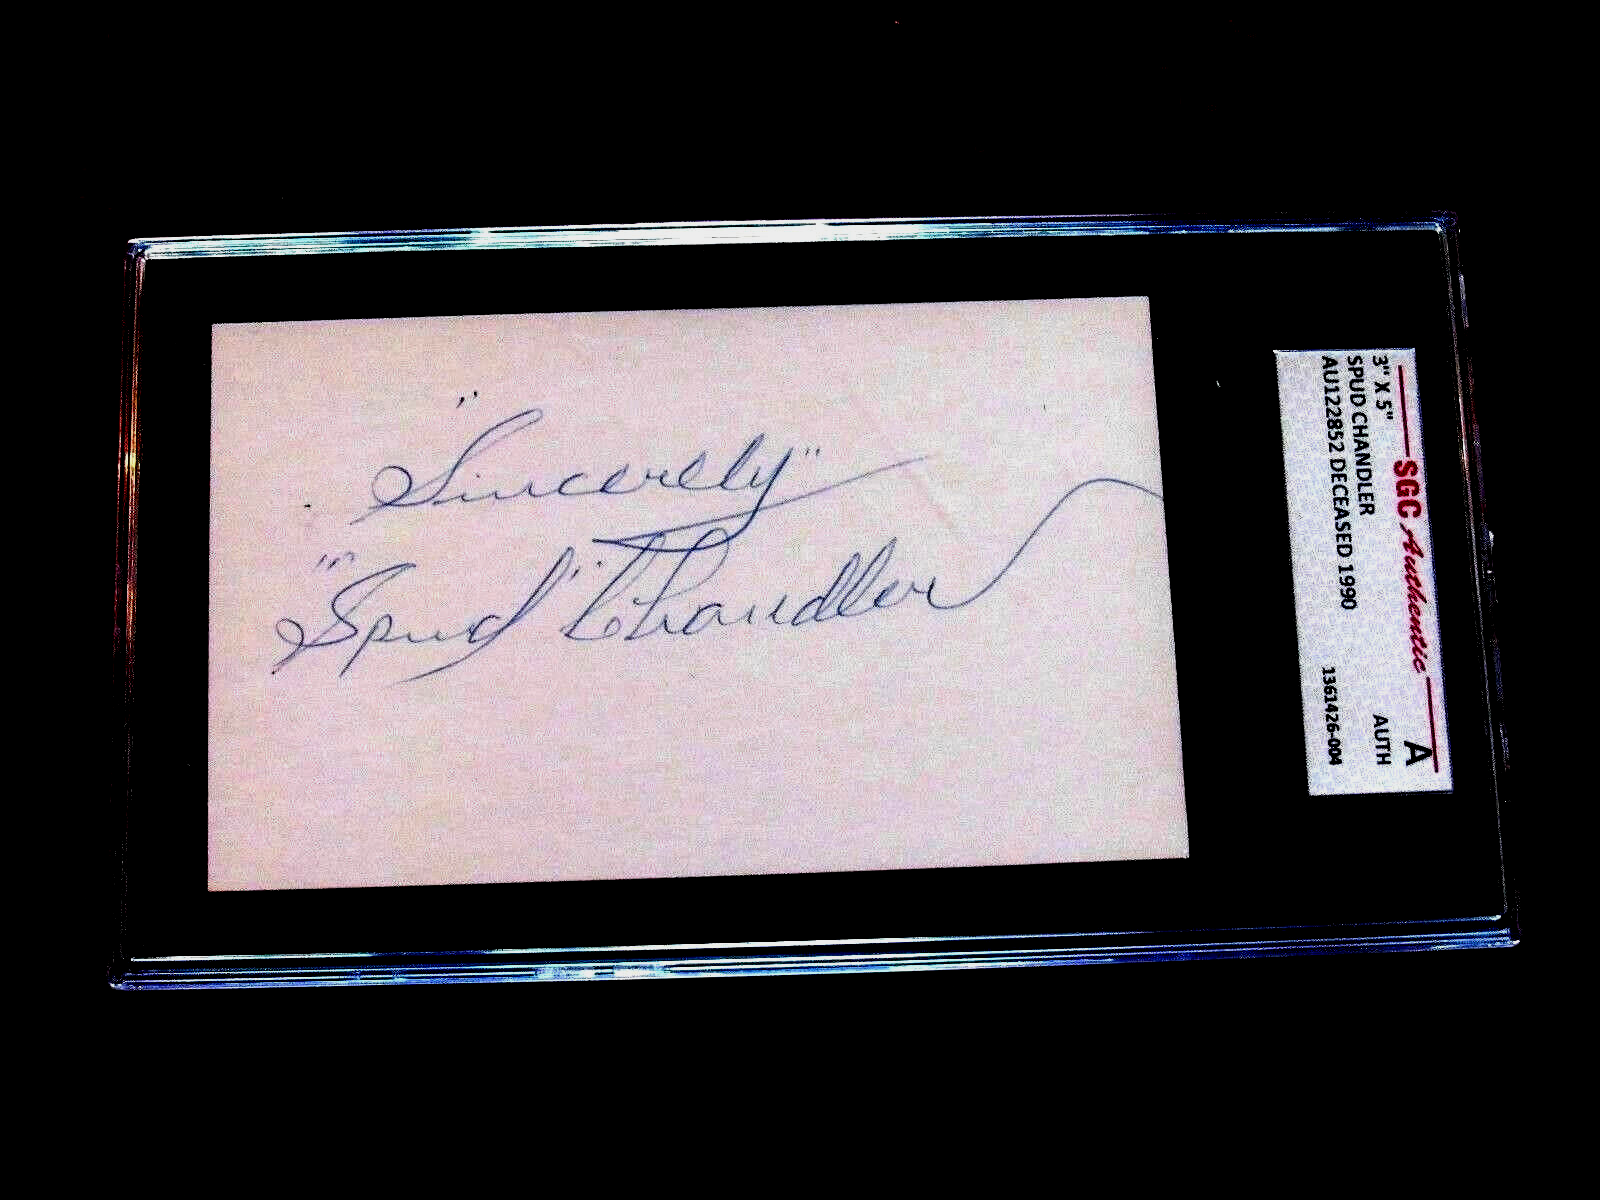 "Sincerely"
"Spud" Chandler
SGC Authentic
A
3" X 5"
AUTH
SPUD CHANDLER
AU122852 DECEASED 1990
1361426-004